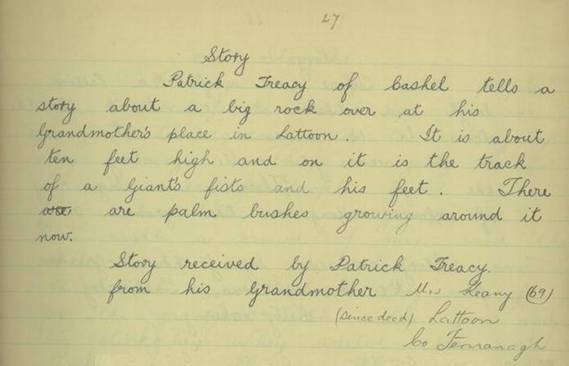 27
Story
Patrick Treacy of Cashel tells a
story about a big rock over at his
Grandmother's place in Lattoon. It is about
ten feet high and on it is the track
of a Giant's fists and his feet. There
are palm bushes growing around it
now.
Story received by Patrick Treacy.
from his Grandmother Mrs Keany (69)
(since dead) Lattoon
Co Fearanagh